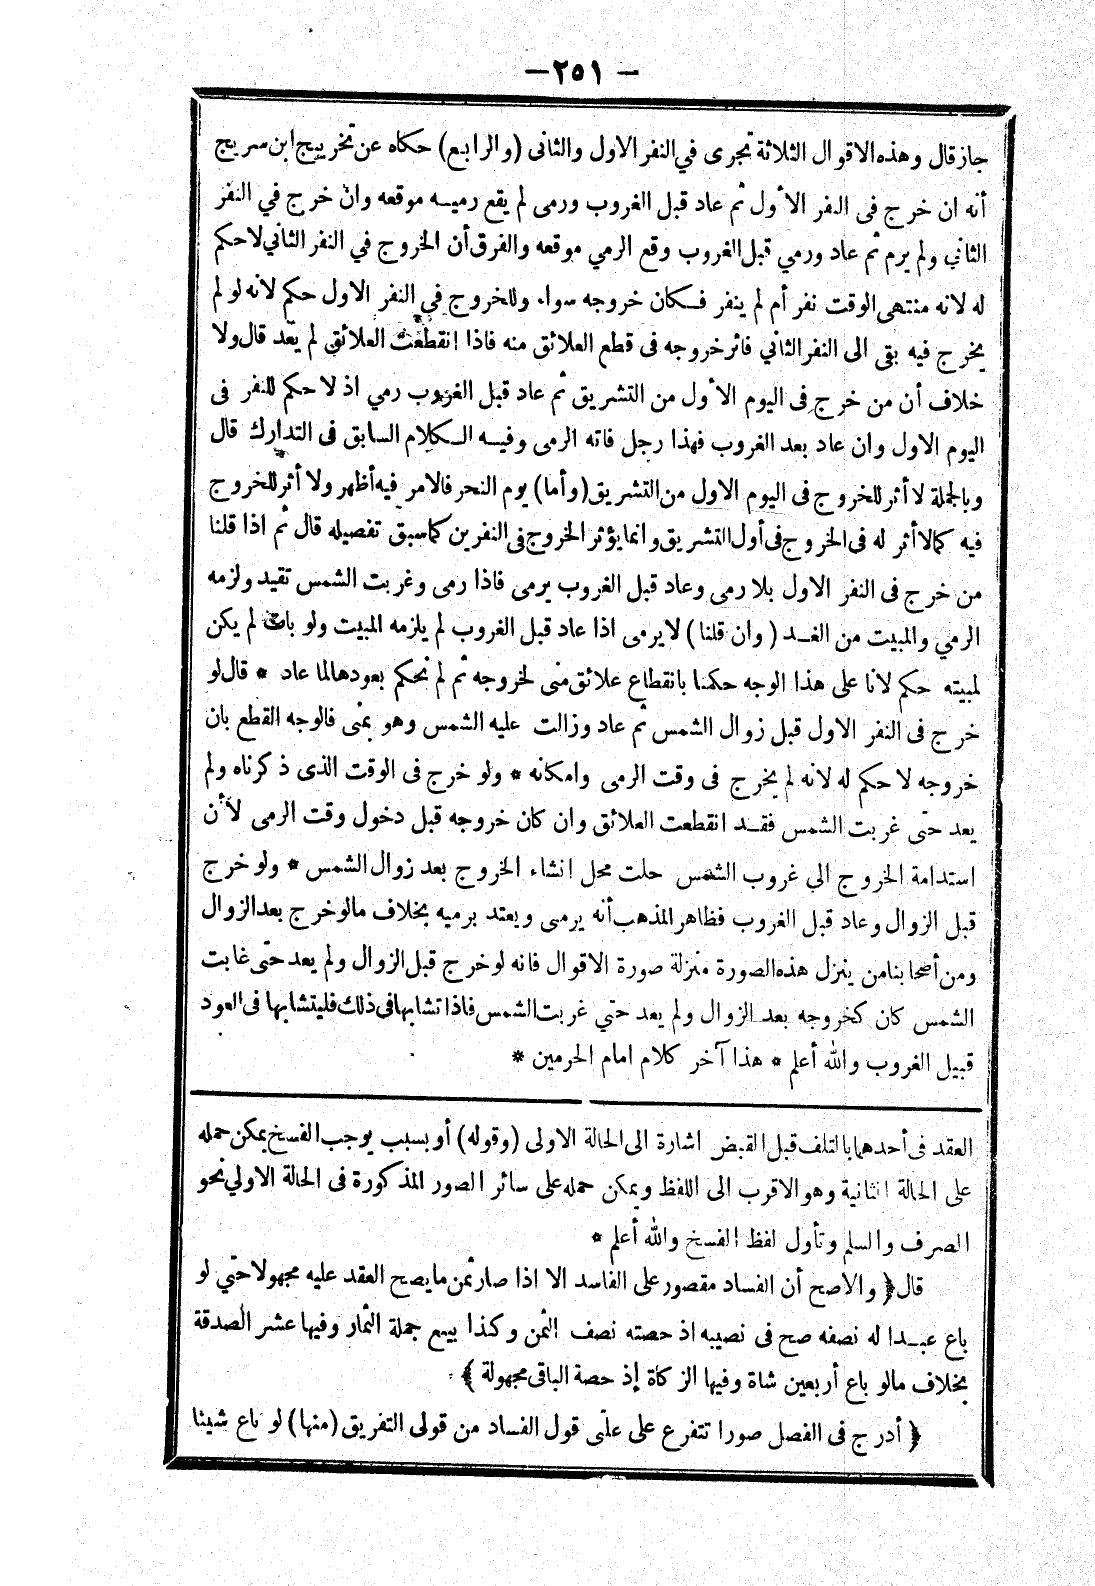 — ٢٥١ —
جاز قال وهذه الاقوال الثلاثة تجرى في النفر الاول والثانى (والرابع) حكاه عن تخريج ابن سريج
أنه ان خرج فى النفر الأول ثم عاد قبل الغروب ورمى لم يقع رميه موقعه وان خرج في النفر
الثاني ولم يرم ثم عاد ورمي قبل الغروب وقع الرمي موقعه والفرق أن الخروج في النفر الثاني لا حكم
له لانه منتهى الوقت نفر أم لم ينفر فكان خروجه سواء وللخروج في النفر الاول حكم لانه لو لم
يخرج فيه بقى الى النفر الثاني فاثر خروجه فى قطع العلائق منه فاذا انقطعت العلائق لم يعد قال ولا
خلاف أن من خرج فى اليوم الأول من التشريق ثم عاد قبل الغروب رمي اذ لا حكم للنفر فى
اليوم الاول وان عاد بعد الغروب فهذا رجل فاته الرمى وفيه الكلام السابق فى التدارك قال
وبالجملة لا أثر للخروج فى اليوم الاول من التشريق (وأما) يوم النحر فالامر فيه أظهر ولا أثر للخروج
فيه كمالا أثر له فى الخروج فى أول التشريق وانما يؤثر الخروج فى النفرين كما سبق تفصيله قال ثم اذا قلنا
من خرج فى النفر الاول بلا رمى وعاد قبل الغروب يرمى فاذا رمى وغربت الشمس تقيد ولزمه
الرمي والمبيت من الغد (وان قلنا) لا يرمى اذا عاد قبل الغروب لم يلزمه المبيت ولو بات لم يكن
لمبيته حكم لانا على هذا الوجه حكمنا بانقطاع علائق منى لخروجه ثم لم نحكم بعودها لما عاد * قال لو
خرج فى النفر الاول قبل زوال الشمس ثم عاد وزالت عليه الشمس وهو بمنى فالوجه القطع بان
خروجه لا حكم له لانه لم يخرج فى وقت الرمى وامكانه * ولو خرج فى الوقت الذى ذكرناه ولم
يعد حتى غربت الشمس فقد انقطعت العلائق وان كان خروجه قبل دخول وقت الرمى لأن
استدامة الخروج الي غروب الشمس حلت محل انشاء الخروج بعد زوال الشمس * ولو خرج
قبل الزوال وعاد قبل الغروب فظاهر المذهب أنه يرمى ويعتد برميه بخلاف مالو خرج بعد الزوال
ومن أصحابنا من ينزل هذه الصورة منزلة صورة الاقوال فانه لو خرج قبل الزوال ولم يعد حتى غابت
الشمس كان كخروجه بعد الزوال ولم يعد حتي غربت الشمس فاذا تشابها فى ذلك فليتشابها فى العود
قبيل الغروب والله أعلم * هذا آخر كلام امام الحرمين *
العقد فى أحدهما بالتلف قبل القبض اشارة الى الحالة الاولى (وقوله) أو بسبب يوجب الفسخ يمكن حمله
على الحالة الثانية وهو الاقرب الى اللفظ ويمكن حمله على سائر الصور المذكورة فى الحالة الاولي نحو
الصرف والسلم وتأول لفظ الفسخ والله أعلم *
قال ﴿ والاصح أن الفساد مقصور على الفاسد الا اذا صار ثمن ما يصح العقد عليه مجهولا حتي لو
باع عبدا له نصفه صح فى نصيبه اذ حصته نصف الثمن وكذا بيع جملة الثمار وفيها عشر الصدقة
بخلاف مالو باع أربعين شاة وفيها الزكاة إذ حصة الباقى مجهولة ﴾
﴿ أدرج فى الفصل صورا تتفرع على على قول الفساد من قولى التفريق (منها) لو باع شيئا